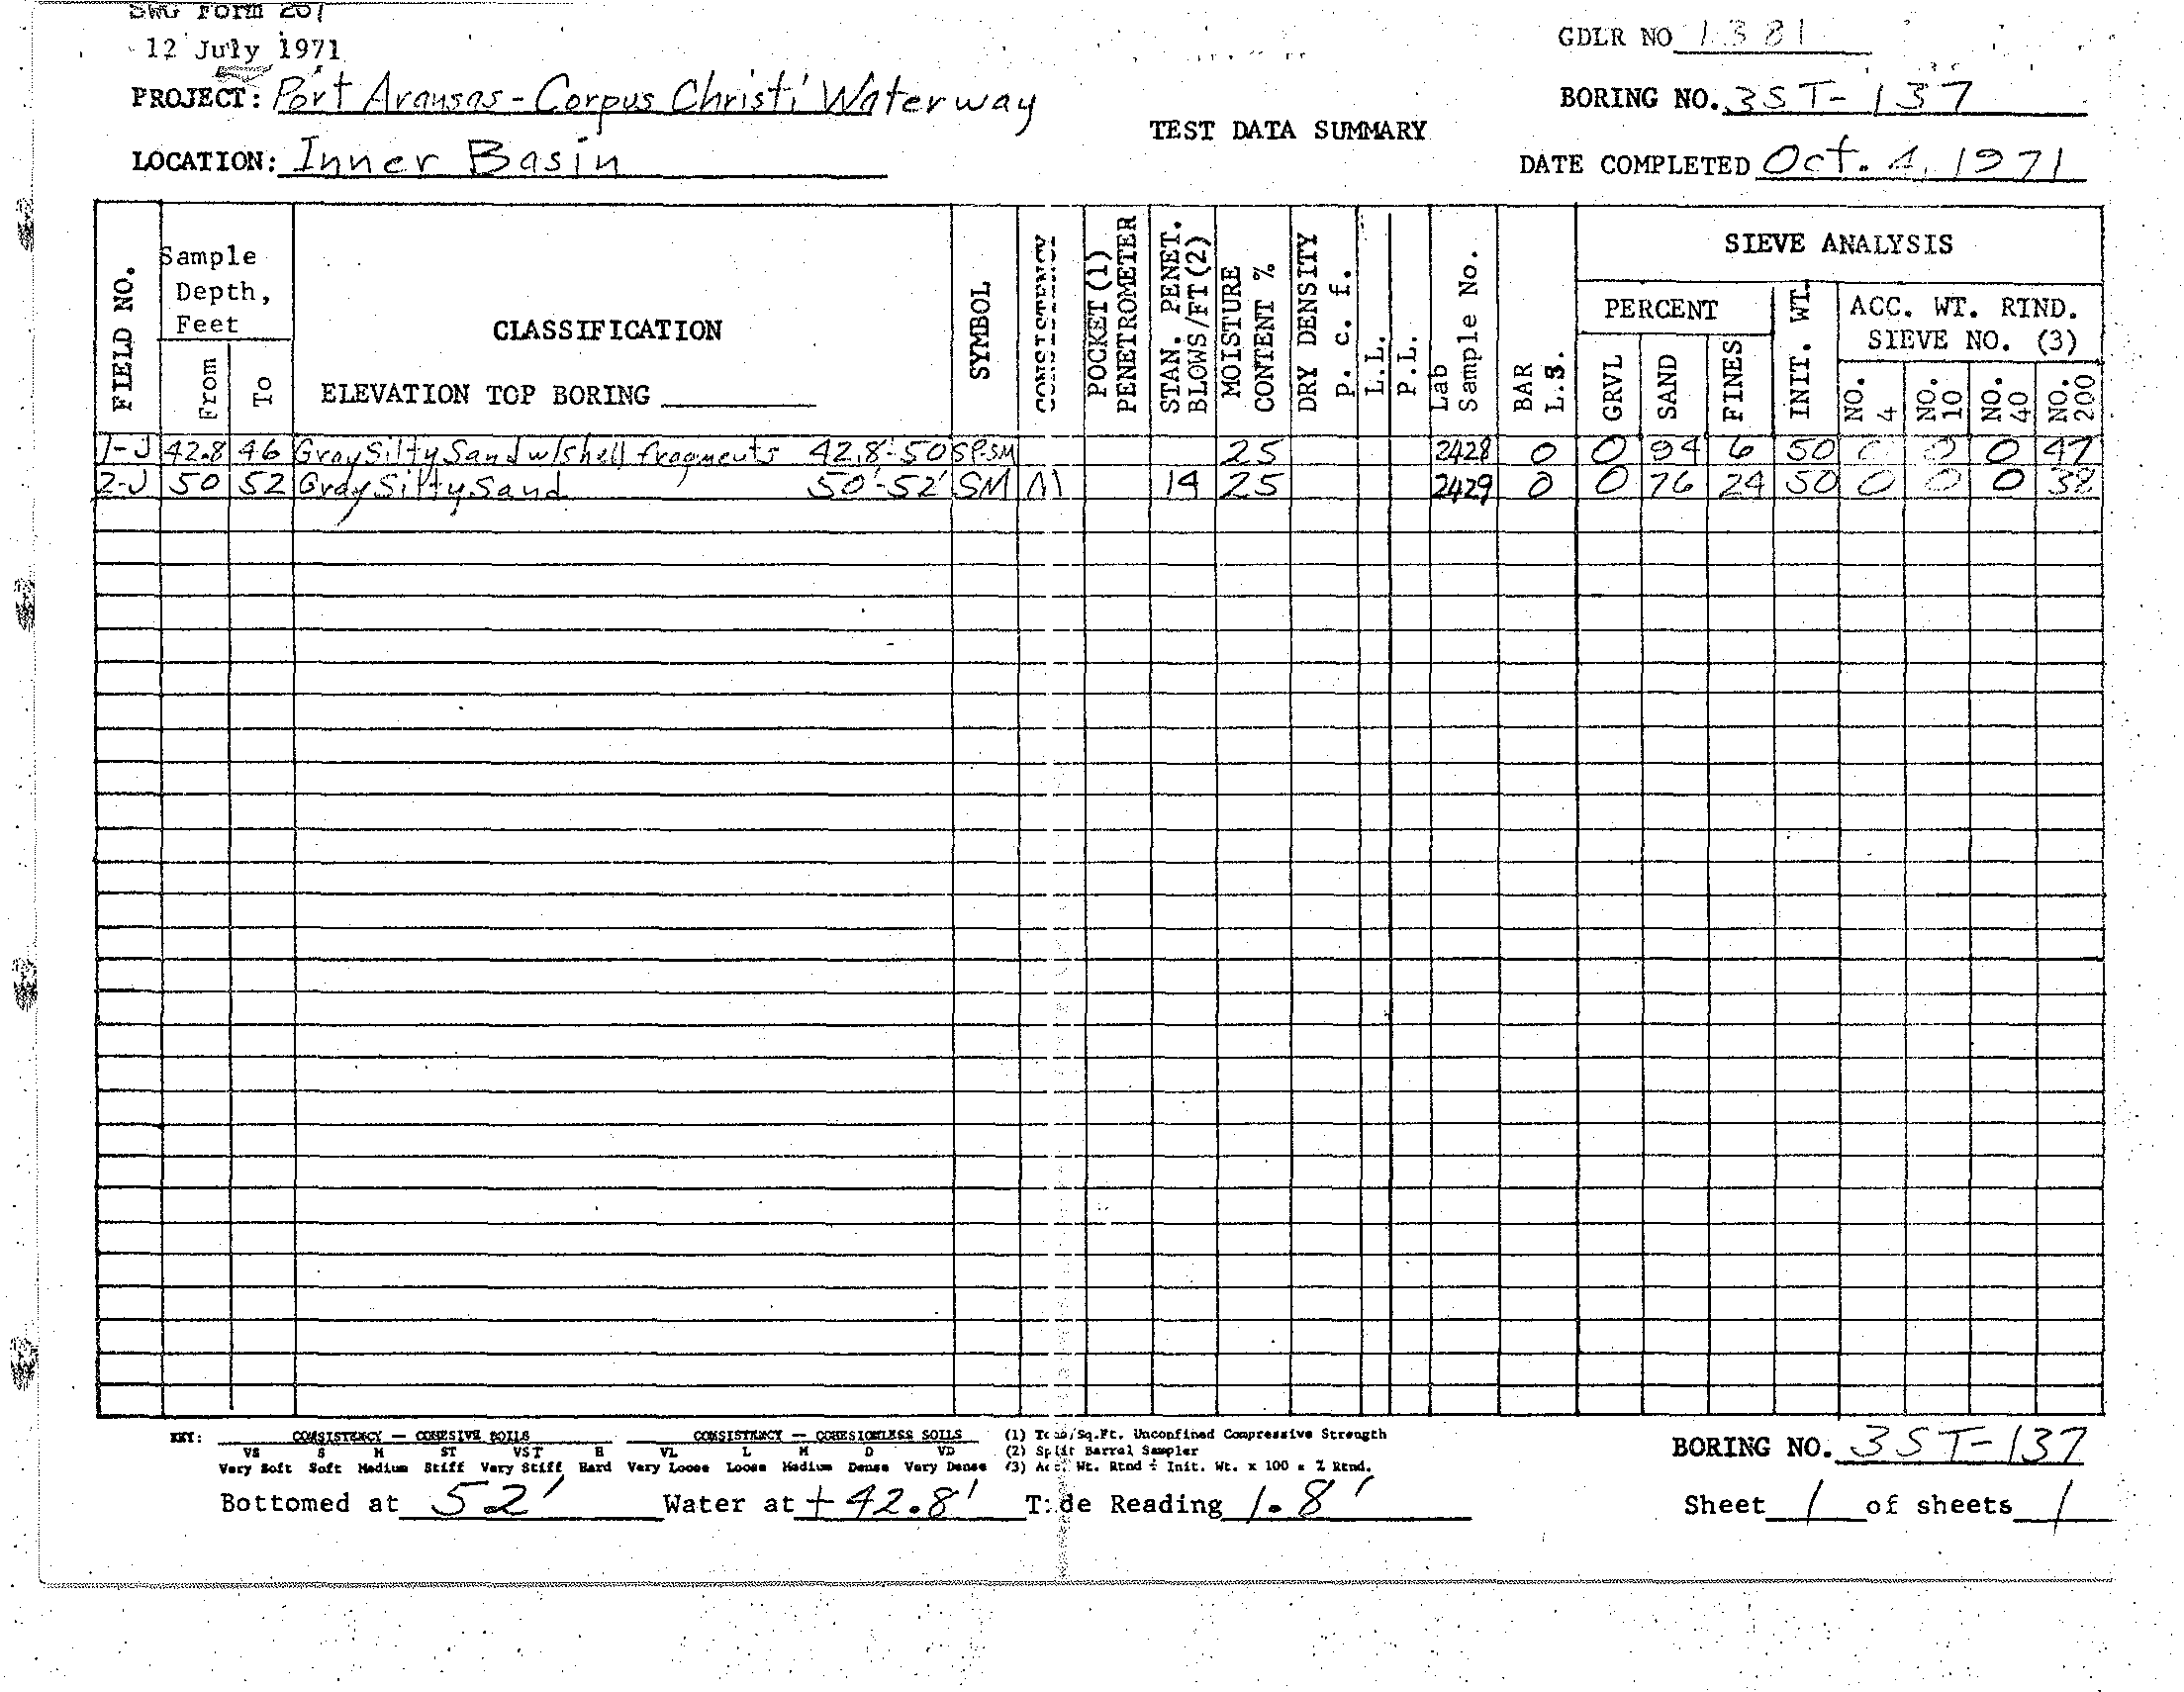 SWG Form 201
12 July 1971
GDLR NO 1381
PROJECT: Port Aransas - Corpus Christi Waterway
BORING NO. 3ST-137
TEST DATA SUMMARY
LOCATION: Inner Basin
DATE COMPLETED Oct. 4, 1971
FIELD NO.
Sample Depth, Feet
From
To
CLASSIFICATION
ELEVATION TOP BORING
SYMBOL
CONSISTENCY
POCKET (1) PENETROMETER
STAN. PENET. BLOWS/FT (2)
MOISTURE CONTENT %
DRY DENSITY P. c. f.
L.L.
P.L.
Lab Sample No.
BAR L.S.
SIEVE ANALYSIS
PERCENT
GRVL
SAND
FINES
INIT. WT.
ACC. WT. RTND.
SIEVE NO. (3)
NO. 4
NO. 10
NO. 40
NO. 200
1-J 42.8 46 Gray Silty Sand w/shell fragments 42.8'-50 SP-SM 25 2428 0 0 94 6 50 0 0 0 47
2-J 50 52 Gray Silty Sand 50'-52' SM M 14 25 2429 0 0 76 24 50 0 0 0 38
KEY: CONSISTENCY — COHESIVE SOILS CONSISTENCY — COHESIONLESS SOILS (1) Tons/Sq.Ft. Unconfined Compressive Strength
VS S M ST VST H VL L M D VD (2) Split Barrel Sampler
Very Soft Soft Medium Stiff Very Stiff Hard Very Loose Loose Medium Dense Very Dense (3) Acc. Wt. Rtnd ÷ Init. Wt. x 100 = % Rtnd.
BORING NO. 3ST-137
Bottomed at 52' Water at +42.8' Tide Reading 1.8' Sheet 1 of sheets 1